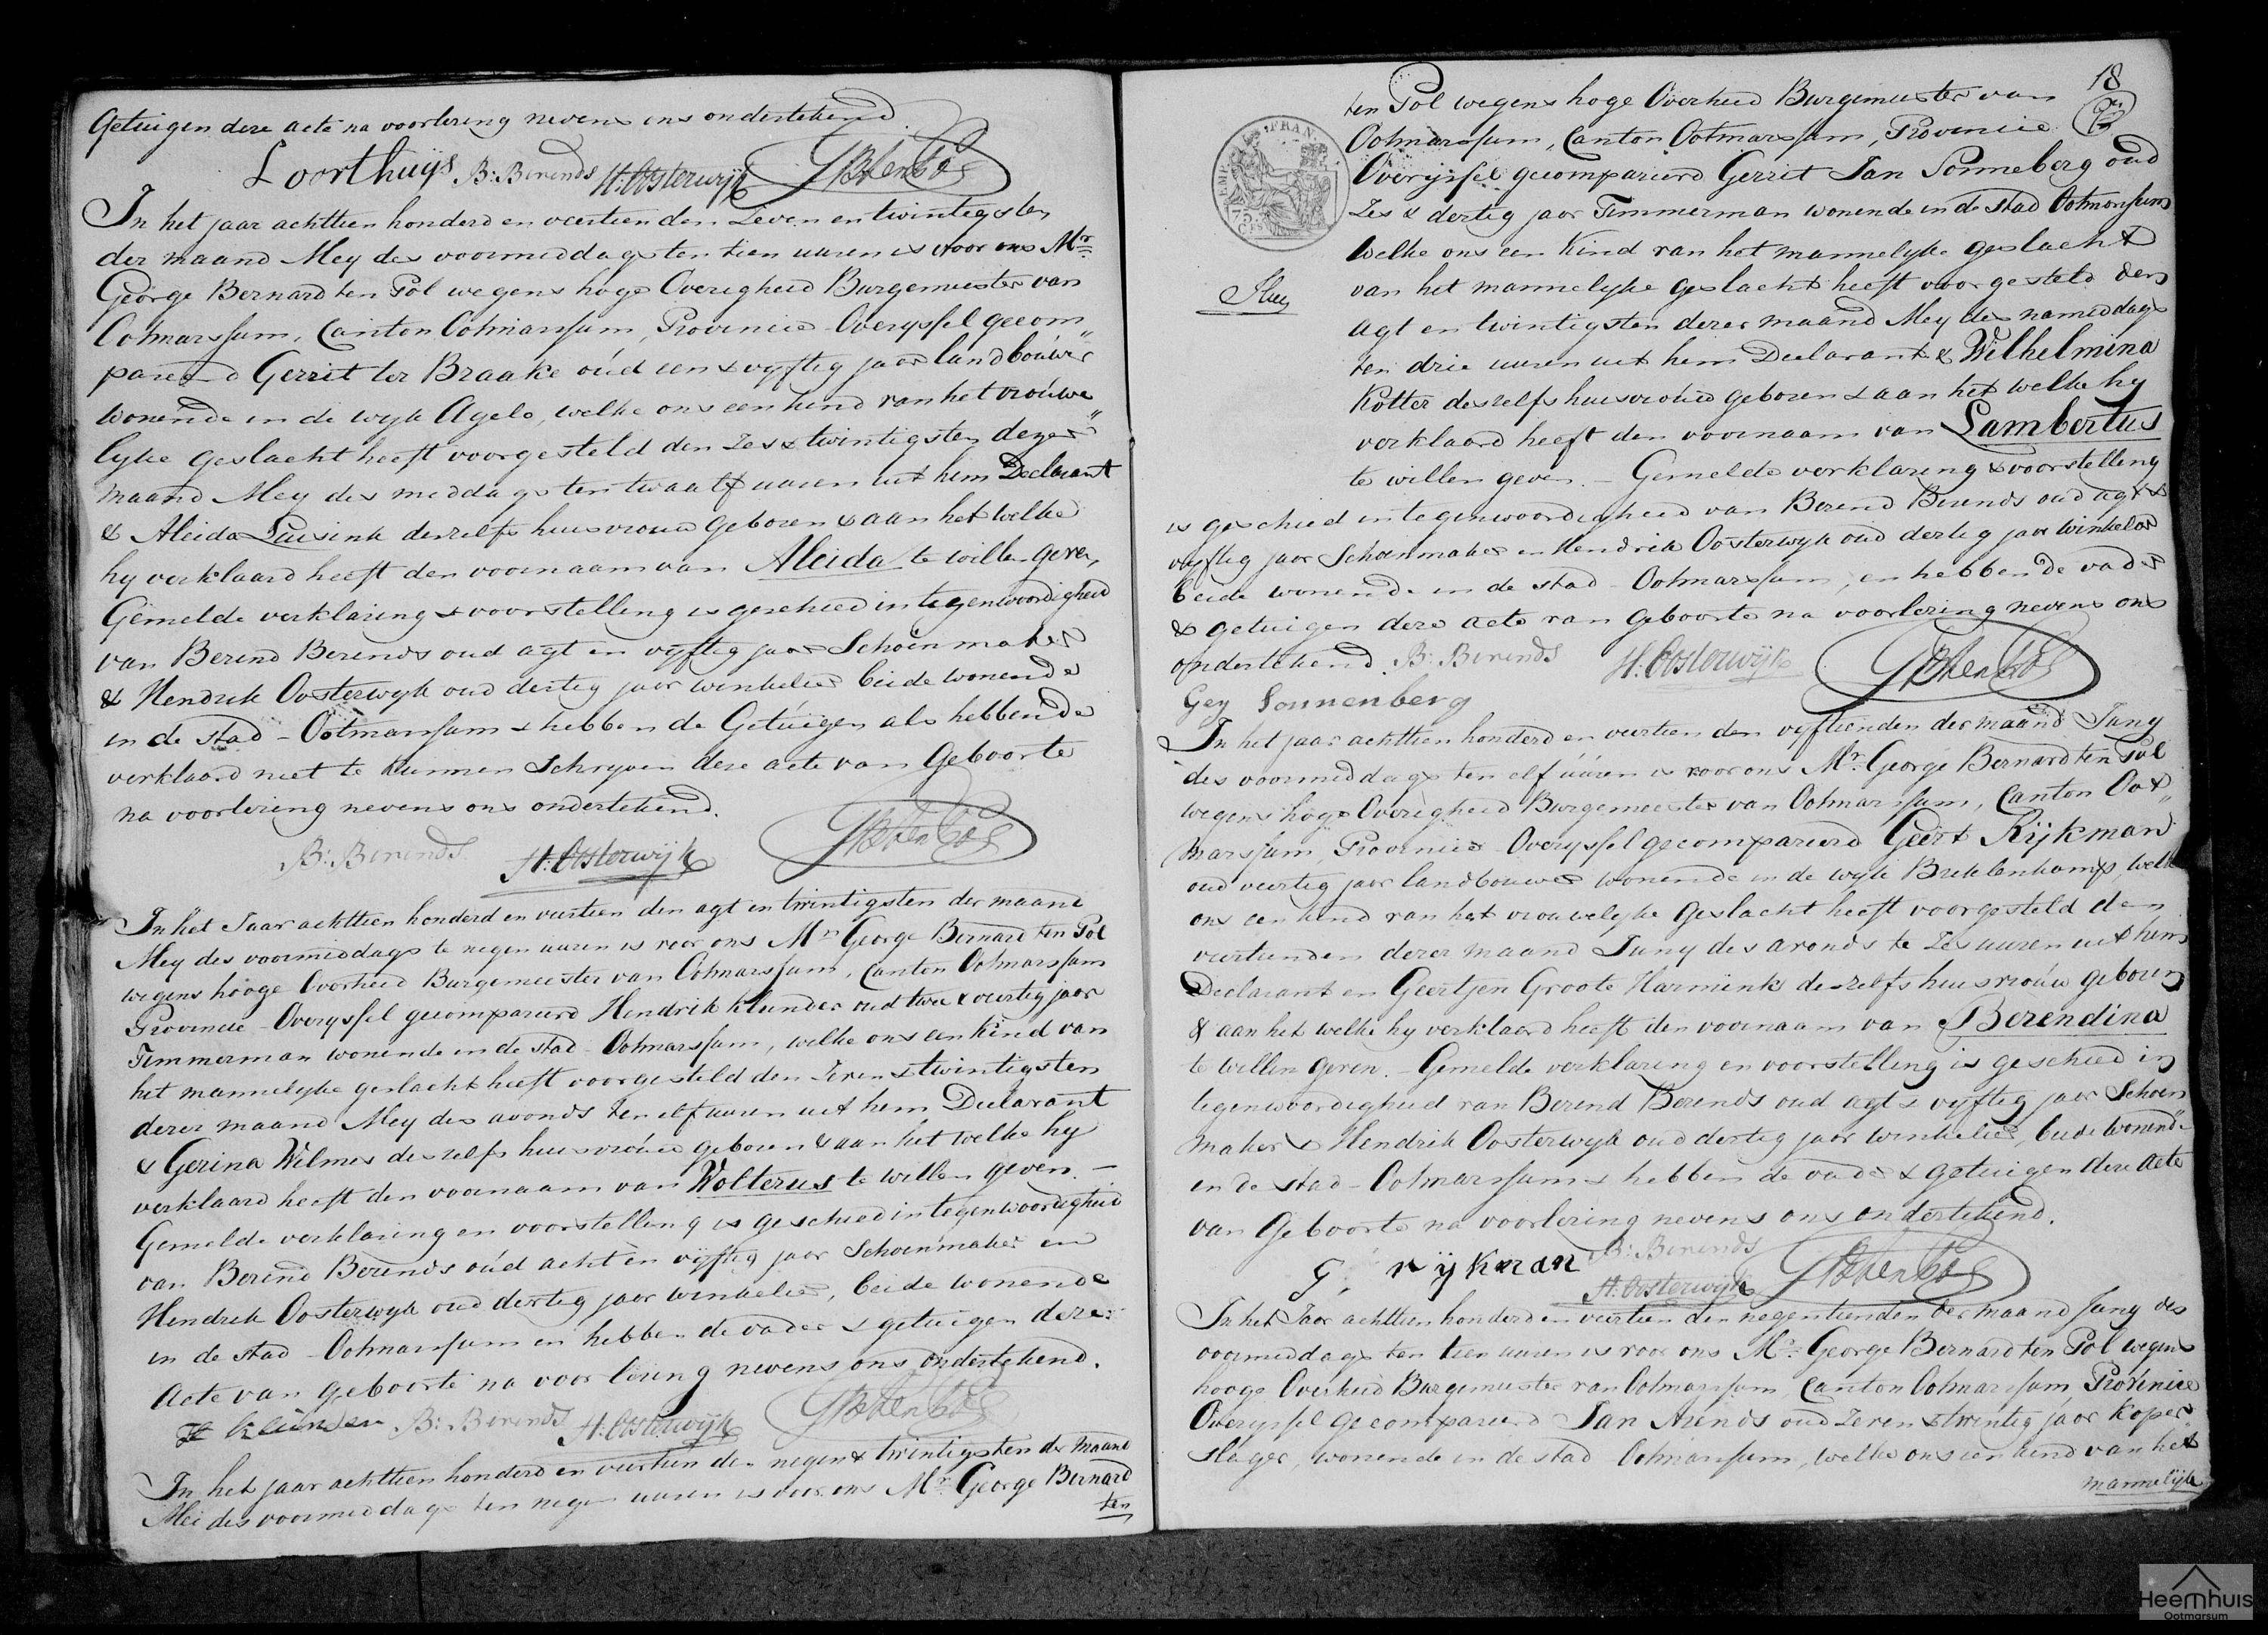 Getuigen deze acte na voorlezing nevens ons ondertekend
Loorthuijs B: Berends H: Oosterwijk GBtenPol
In het jaar achttien honderd en veertien den Zeven en twintigsten
der maand Mey des voormiddags ten tien uuren is voor ons Mr.
George Bernard ten Pol wegens hoge Overigheid Burgemeester van
Ootmarssum, Canton Ootmarssum, Provincie Overyssel gecom„
pareerd Gerrit ter Braake oúd een & vyftig jaar landboúwer
wonende in de wyk Agelo, welke ons een kind van het vroúwe„
lyke geslacht heeft voorgesteld den Zes & twintigsten dezer
maand Mey des middags ten twaalf uuren uit hem Declarant
& Aleida Luisink deszelfs huisvrouw geboren & aan het welke
hy verklaard heeft den voornaam van Aleida te willen geven,
Gemelde verklaring & voorstelling is geschied in tegenwoordigheid
van Berend Berends oud agt en vyftig jaar Schoenmaker
& Hendrik Oosterwyk oud dertig jaar winkelier beide wonende
in de stad - Ootmarssum & hebben de Getúigen als hebbende
verklaard niet te kunnen Schryven deze acte van Geboorte
na voorlezing nevens ons ondertekend.
B: Berends H: Oosterwijk GBtenPol
In het Jaar achttien honderd en veertien den agt en twintigsten der maand
Mey des voormiddags te negen uuren is voor ons Mr. George Bernard ten Pol
wegens hooge Overheid Burgemeester van Ootmarssum, Canton Ootmarssum
Provincie - Overyssel gecompareerd Hendrik Klunder oud twee & veertig jaar
Timmerman wonende in de stad - Ootmarssum, welke ons een kind van
het mannelyke geslacht heeft voorgesteld den Zeven & twintigsten
dezer maand Mey des avonds ten elf uuren uit hem Declarant
& Gerina Wilmes deszelfs huisvroúw geboren & aan het welke hy
verklaard heeft den voornaam van Wolterus te willen geven. —
Gemelde verklaring en voorstelling is geschied in tegenwoordigheid
van Berend Berends oúd acht en vyftig jaar Schoenmaker en
Hendrik Oosterwyk oud dertig jaar winkelier, beide wonende
in de stad - Ootmarssum en hebben de vader & getuigen deze
acte van geboorte na voorlezing nevens ons ondertekend.
H klunder B: Berends H: Oosterwijk GBtenPol
In het jaar achttien honderd en veertien den negen & twintigsten der maand
Mei des voormiddags ten negen uuren is voor ons Mr. George Bernard
ten
18
ten Pol wegens hoge Overheid Burgemeester van
Ootmarssum, Canton Ootmarssum, Provincie
Overijssel gecompareerd Gerrit Jan Sonneberg oud
Zes & dertig jaar Timmerman wonende in de stad Ootmarssum
welke ons een Kind van het mannelyke geslacht
van het mannelyke geslacht heeft voorgesteld den
agt en twintigsten dezer maand Mey des namiddags
ten drie uuren uit hem Declarant & Wilhelmina
Kotter deszelfs huisvroúw geboren & aan het welke hy
verklaard heeft den voornaam van Lambertus
te willen geven. — Gemelde verklaring & voorstelling
is geschied in tegenwoordigheid van Berend Berends oud agt &
vyftig jaar Schoenmaker en Hendrik Oosterwyk oud dertig jaar winkelier
beide wonende in de stad - Ootmarssum, en hebben de vader
& getuigen deze acte van geboorte na voorlezing nevens ons
ondertekend. B: Berends H: Oosterwijk GBtenPol
Sonnenberg
In het jaar achttien honderd en veertien den vyftienden der maand Juny
des voormiddags ten elf úúren is voor ons Mr. George Bernard ten Pol
wegens hoge Overigheid Burgemeester van Ootmarssum, Canton Oot„
marssum, Provincie Overyssel gecompareerd Geert Rijkman
oud veertig jaar landbouwer wonende in de wyk Breklenkamp, welke
ons een kind van het vrouwelyke geslacht heeft voorgesteld den
veertienden dezer maand Juny des avonds te Zes uuren uit hem
Declarant en Geertjen Groote Harmink deszelfs huisvroúw geboren
& aan het welke hy verklaard heeft den voornaam van Berendina
te willen geven. — Gemelde verklaring en voorstelling is geschied in
tegenwoordigheid van Berend Berends oud agt & vyftig jaar Schoen„
maker & Hendrik Oosterwyk oud dertig jaar winkelier, beide wonende
in de stad - Ootmarssum & hebben de vader & getuigen deze acte
van Geboorte na voorlezing nevens ons ondertekend.
G: rijkman B: Berends
H: Oosterwijk GBtenPol
In het Jaar achttien honderd en veertien den negentienden der maand Juny des
voormiddags ten tien uuren is voor ons Mr. George Bernard ten Pol wegens
hooge Overheid Burgemeester van Ootmarssum, Canton Ootmarssum Provincie
Overyssel gecompareerd Jan Arends oud Zeven & twintig jaar Koper„
slager, wonende in de stad Ootmarssum, welke ons een kind van het
mannelijk
FRAN.
75.
Cts
Heemhuis
Ootmarsum